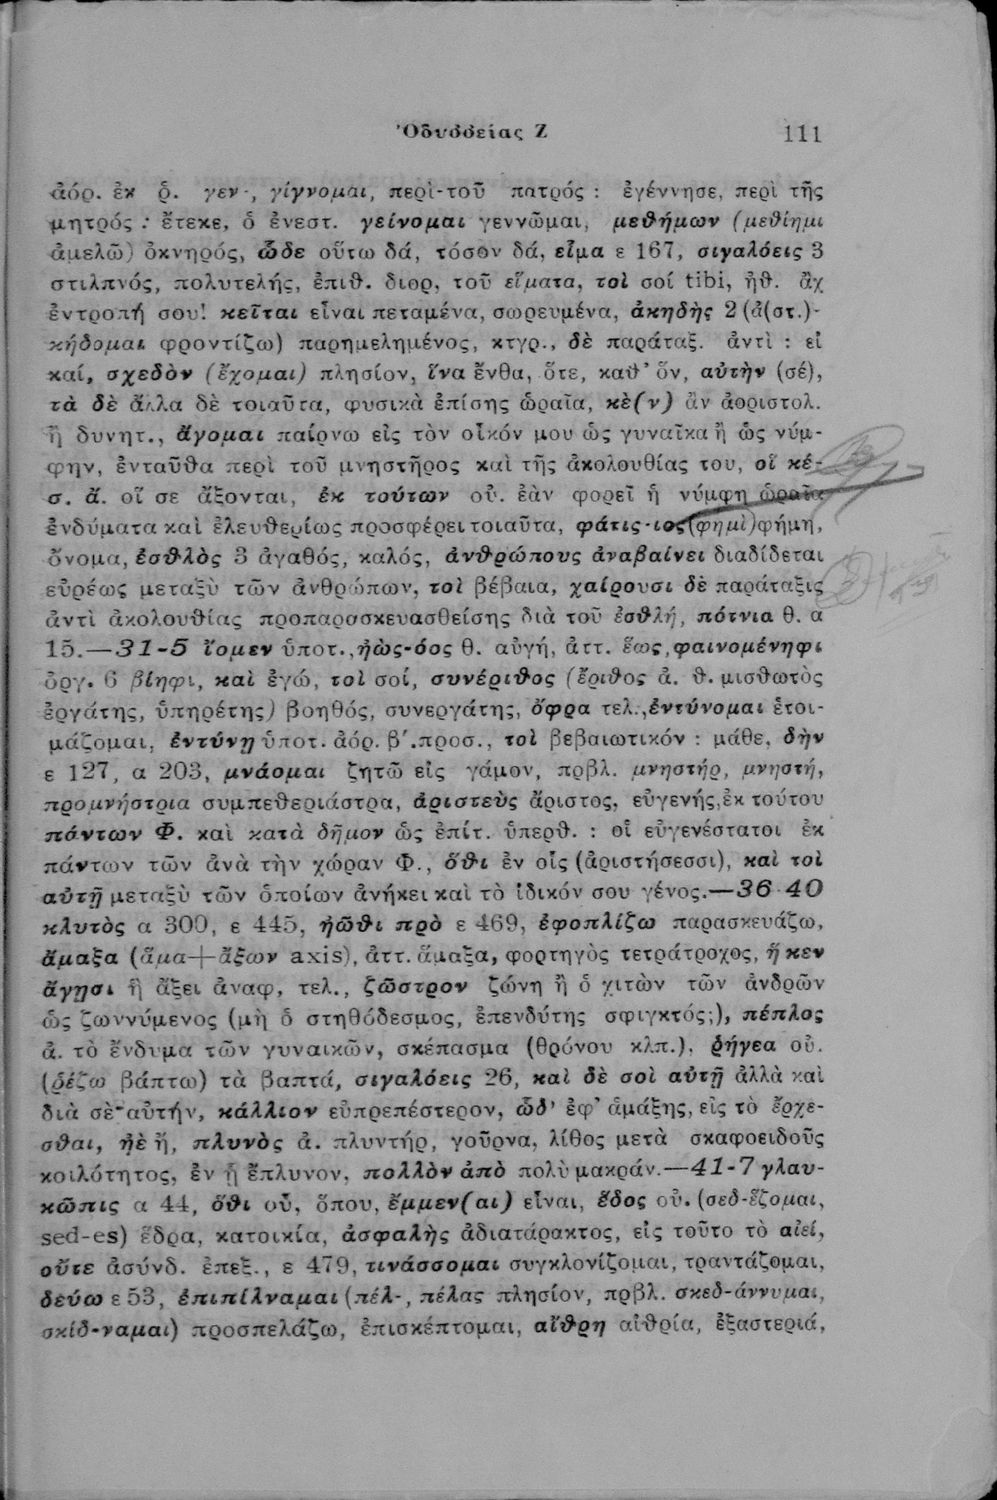 Ὀδυσσείας Ζ 111
ἀόρ. ἐκ ῥ. γεν-, γίγνομαι, περὶ-τοῦ πατρός : ἐγέννησε, περὶ τῆς
μητρός : ἔτεκε, ὁ ἐνεστ. γείνομαι γεννῶμαι, μεθήμων (μεθίημι
ἀμελῶ) ὀκνηρός, ὧδε οὕτω δά, τόσον δά, εἷμα ε 167, σιγαλόεις 3
στιλπνός, πολυτελής, ἐπιθ. διορ. τοῦ εἵματα, τοὶ σοί tibi, ἠθ. ἂχ
ἐντροπή σου! κεῖται εἶναι πεταμένα, σωρευμένα, ἀκηδὴς 2 (ἀ(στ.)-
κήδομαι φροντίζω) παρημελημένος, κτγρ., δὲ παράταξ. ἀντὶ : εἰ
καί, σχεδὸν (ἔχομαι) πλησίον, ἵνα ἔνθα, ὅτε, καθ' ὅν, αὐτὴν (σέ),
τὰ δὲ ἄλλα δὲ τοιαῦτα, φυσικὰ ἐπίσης ὡραῖα, κὲ(ν) ἂν ἀοριστολ.
ἢ δυνητ., ἄγομαι παίρνω εἰς τὸν οἶκόν μου ὡς γυναῖκα ἢ ὡς νύμ-
φην, ἐνταῦθα περὶ τοῦ μνηστῆρος καὶ τῆς ἀκολουθίας του, οἵ κέ-
σ. ἄ. οἵ σε ἄξονται, ἐκ τούτων οὐ. ἐὰν φορεῖ ἡ νύμφη ὡραῖα
ἐνδύματα καὶ ἐλευθερίως προσφέρει τοιαῦτα, φάτις-ιος (φημὶ) φήμη,
ὄνομα, ἐσθλὸς 3 ἀγαθός, καλός, ἀνθρώπους ἀναβαίνει διαδίδεται
εὐρέως μεταξὺ τῶν ἀνθρώπων, τοὶ βέβαια, χαίρουσι δὲ παράταξις
ἀντὶ ἀκολουθίας προπαρασκευασθείσης διὰ τοῦ ἐσθλή, πότνια θ. α
15.—31-5 ἴομεν ὑποτ., ἠὼς-όος θ. αὐγή, ἀττ. ἕως, φαινομένηφι
ὀργ. 6 βίηφι, καὶ ἐγώ, τοὶ σοί, συνέριθος (ἔριθος ἀ. θ. μισθωτὸς
ἐργάτης, ὑπηρέτης) βοηθός, συνεργάτης, ὄφρα τελ., ἐντύνομαι ἑτοι-
μάζομαι, ἐντύνῃ ὑποτ. ἀόρ. β΄. προσ., τοὶ βεβαιωτικόν : μάθε, δὴν
ε 127, α 203, μνάομαι ζητῶ εἰς γάμον, πρβλ. μνηστήρ, μνηστή,
προμνήστρια συμπεθεριάστρα, ἀριστεὺς ἄριστος, εὐγενής, ἐκ τούτου
πάντων Φ. καὶ κατὰ δῆμον ὡς ἐπίτ. ὑπερθ. : οἱ εὐγενέστατοι ἐκ
πάντων τῶν ἀνὰ τὴν χώραν Φ., ὅθι ἐν οἷς (ἀριστήεσσι), καὶ τοὶ
αὐτῇ μεταξὺ τῶν ὁποίων ἀνήκει καὶ τὸ ἰδικόν σου γένος.—36-40
κλυτὸς α 300, ε 445, ἠῶθι πρὸ ε 469, ἐφοπλίζω παρασκευάζω,
ἄμαξα (ἅμα+ἄξων axis), ἀττ. ἅμαξα, φορτηγὸς τετράτροχος, ἥ κεν
ἄγῃσι ἣ ἄξει ἀναφ. τελ., ζῶστρον ζώνη ἢ ὁ χιτὼν τῶν ἀνδρῶν
ὡς ζωννύμενος (μὴ ὁ στηθόδεσμος, ἐπενδύτης σφιγκτός;), πέπλος
ἀ. τὸ ἔνδυμα τῶν γυναικῶν, σκέπασμα (θρόνου κλπ.), ῥήγεα οὐ.
(ῥέζω βάπτω) τὰ βαπτά, σιγαλόεις 26, καὶ δὲ σοὶ αὐτῇ ἀλλὰ καὶ
διὰ σὲ αὐτήν, κάλλιον εὐπρεπέστερον, ὧδ' ἐφ' ἁμάξης, εἰς τὸ ἔρχε-
σθαι, ἠὲ ἤ, πλυνὸς ἀ. πλυντήρ, γοῦρνα, λίθος μετὰ σκαφοειδοῦς
κοιλότητος, ἐν ᾗ ἔπλυνον, πολλὸν ἀπὸ πολὺ μακράν.—41-7 γλαυ-
κῶπις α 44, ὅθι οὗ, ὅπου, ἔμμεν(αι) εἶναι, ἕδος οὐ. (σεδ-ἕζομαι,
sed-es) ἕδρα, κατοικία, ἀσφαλὴς ἀδιατάρακτος, εἰς τοῦτο τὸ αἰεί,
οὔτε ἀσύνδ. ἐπεξ., ε 479, τινάσσομαι συγκλονίζομαι, τραντάζομαι,
δεύω ε 53, ἐπιπίλναμαι (πέλ-, πέλας πλησίον, πρβλ. σκεδ-άννυμαι,
σκίδ-ναμαι) προσπελάζω, ἐπισκέπτομαι, αἴθρη αἰθρία, ἐξαστεριά,